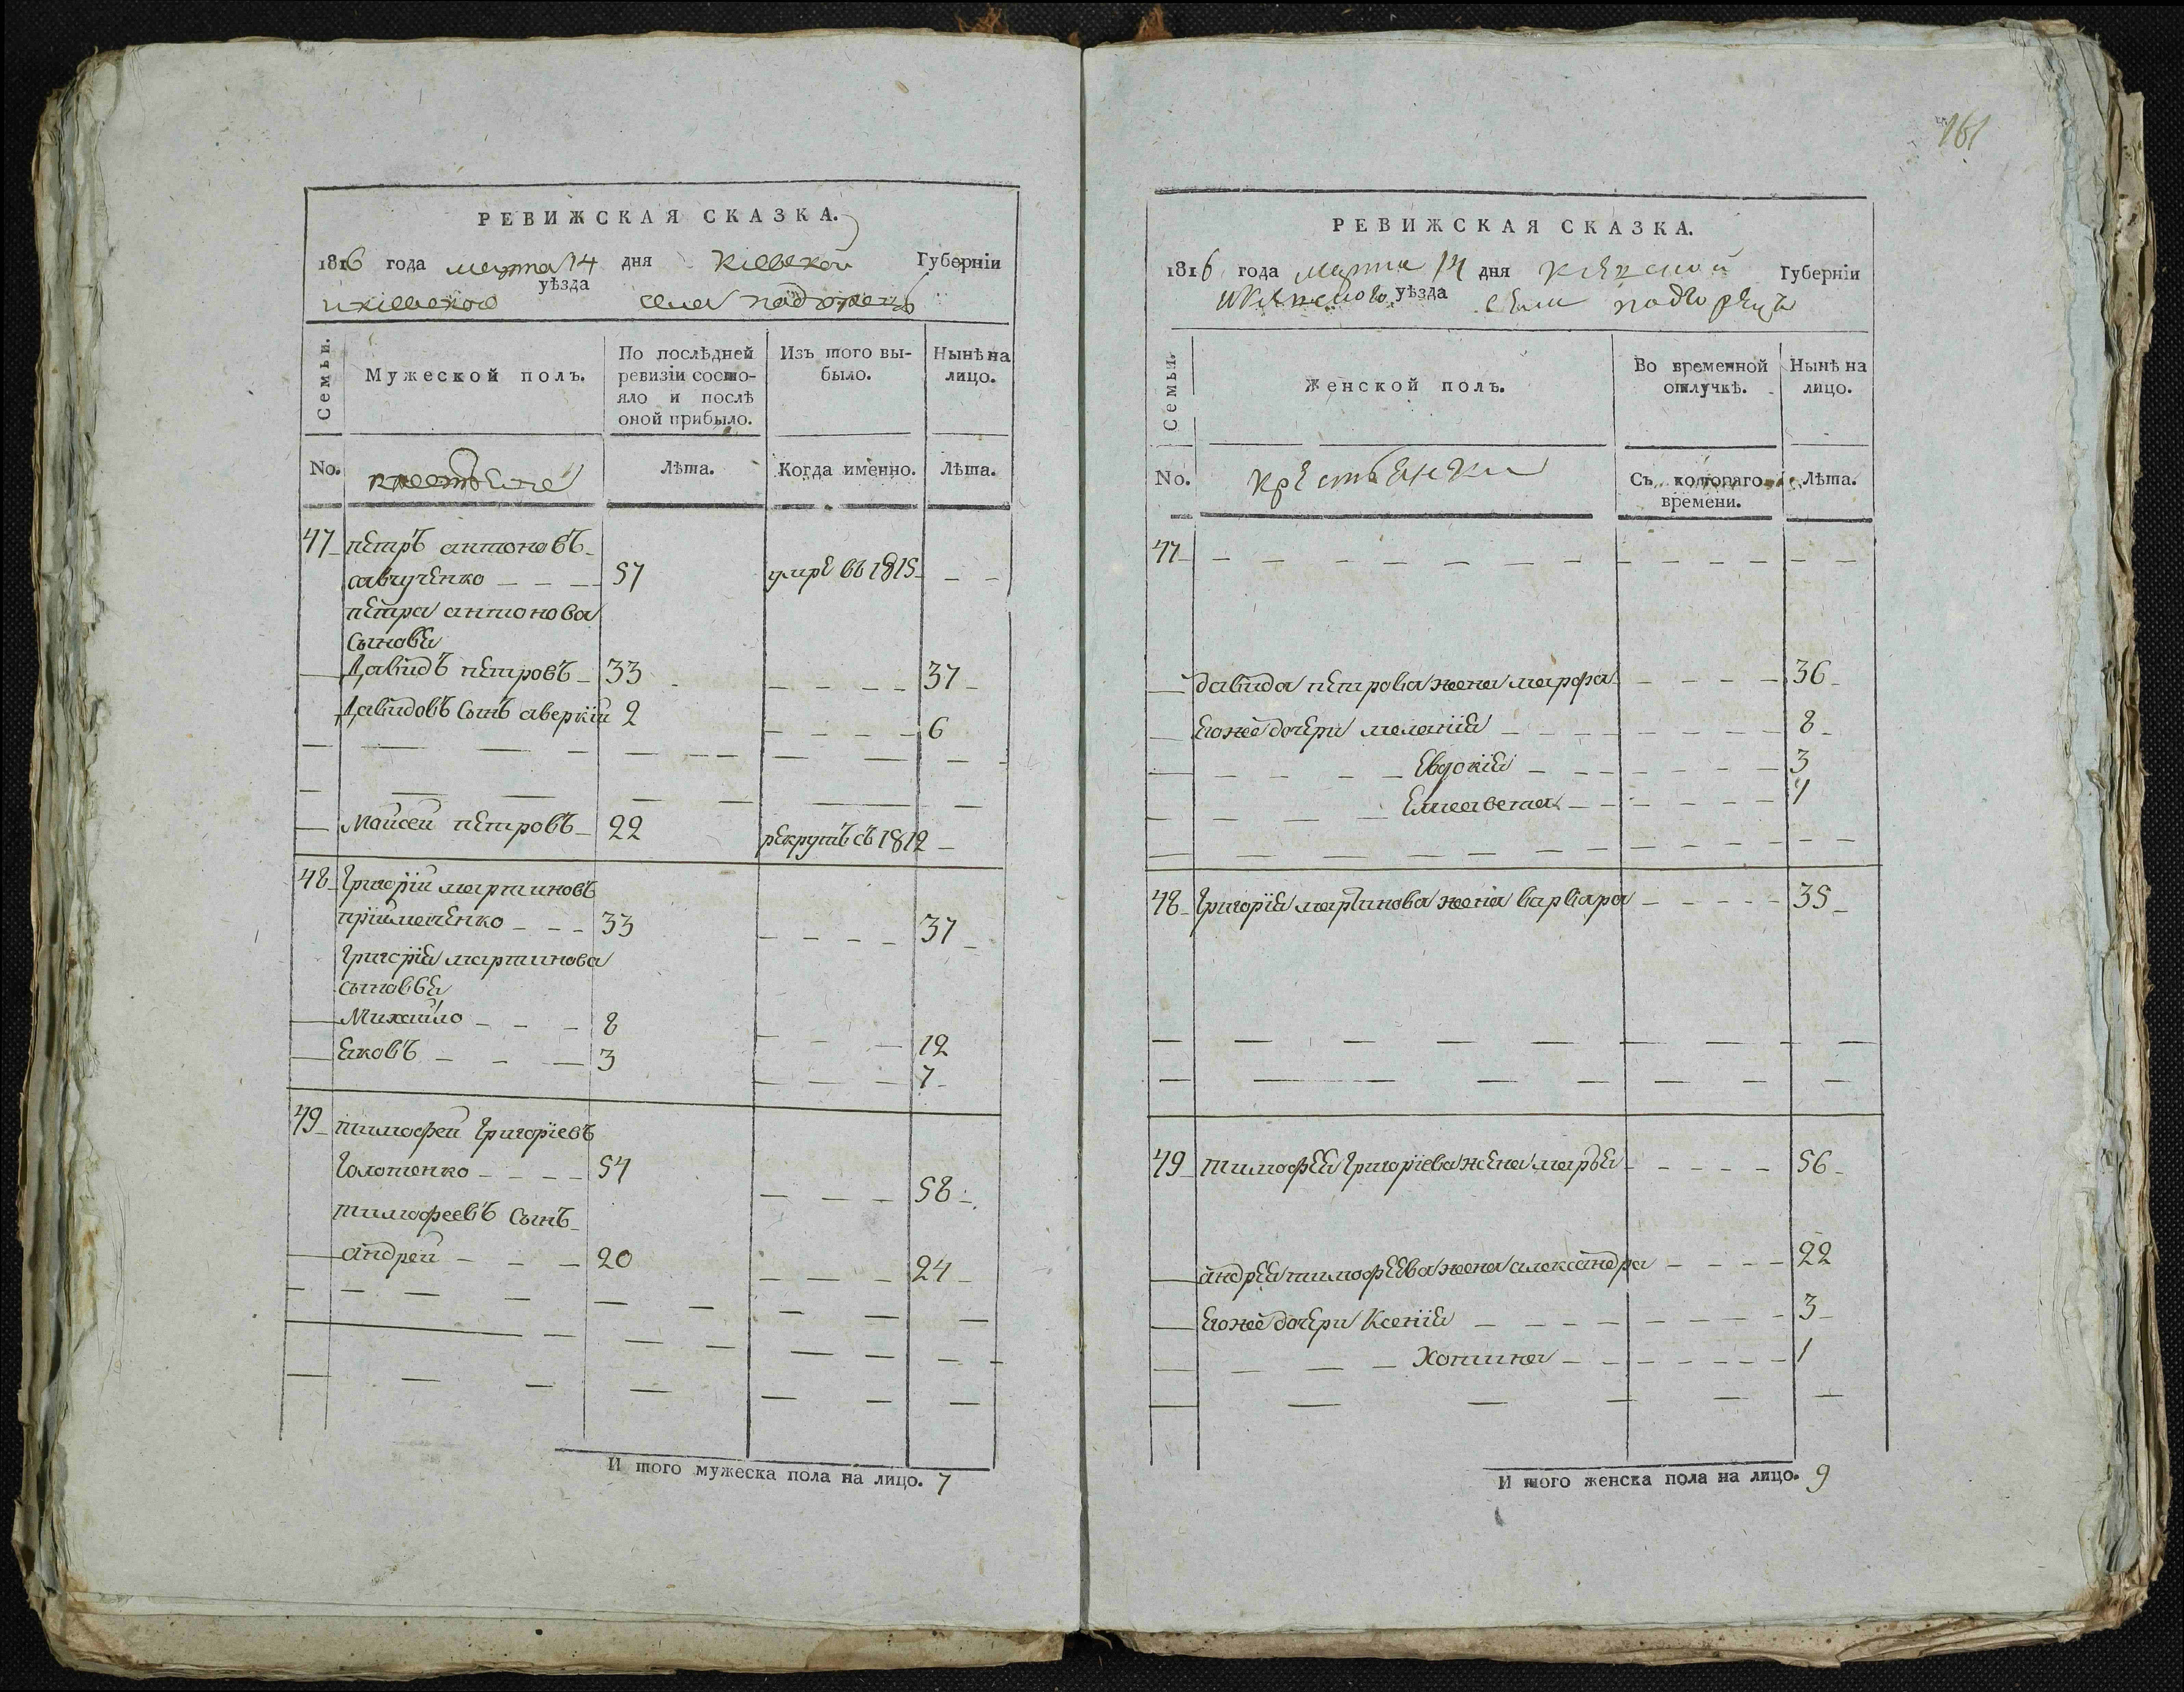 РЕВИЖСКАЯ СКАЗКА.
1816 года марта 14 дня Кіевской Губерніи
икіевского уѣзда села подгорецъ
Семьи.
Мужеской полъ.
По послѣдней ревизіи состояло и послѣ оной прибыло.
Изъ того выбыло.
Нынѣ на лицо.
No.
крестьяне
Лѣта.
Когда именно.
Лѣта.
47 петръ антоновъ
савученко 57 умре въ 1815
петра антонова
сыновья
Давидъ петровъ 33 37
Давидовъ сынъ аверкій 2 6
Моисей петровъ 22 рекрутъ съ 1812
48 Григорій мартиновъ
пріймаченко 33 37
Григорія мартинова
сыновья
Михайло 8 12
яковъ 3 7
49 тимофей Григоріевъ
54 58
тимофеевъ сынъ
андрей 20 24
И того мужеска пола на лицо. 7
161
РЕВИЖСКАЯ СКАЗКА.
1816 года марта 14 дня Кіевской Губерніи
икіевского уѣзда села подгорецъ
Семьи.
Женской полъ.
Во временной отлучкѣ.
Нынѣ на лицо.
No.
крестьянки
Съ котораго времени.
Лѣта.
47
давида петрова жена марфа 36
егоже дочери меланія 8
Евдокія 3
Елисавета 1
48 Григорія мартинова жена варвара 35
49 тимофея Григоріева жена марья 56
андрея тимофеева жена александра 22
егоже дочери Ксенія 3
1
И того женска пола на лицо. 9